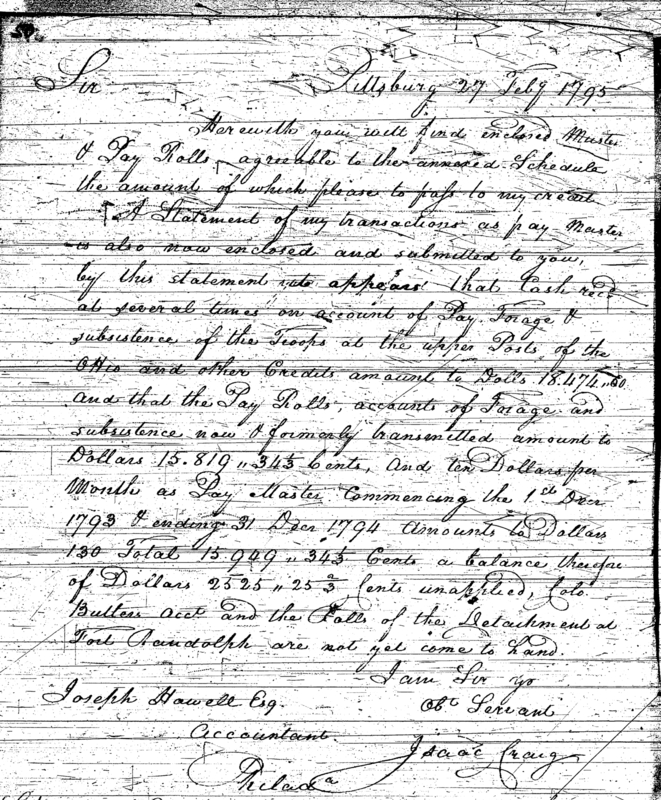 Sir Pittsburg 27 Feby 1795
Herewith you will find enclosed Muster
& Pay Rolls agreable to the annexed Schedule
the amount of which please to pass to my credit
A Statement of my transactions as pay Master
is also now enclosed and submitted to you,
by this statement it appears that Cash recd
at several times on account of Pay Forage &
subsistence of the Troops at the upper Posts of the
Ohio and other Credits amount to Dolls 18.474,,60
and that the Pay Rolls, accounts of Forage and
subsistence now & formerly transmitted amount to
Dollars 15.819,,34⅓ Cents, and ten Dollars per
Month as Pay Master Commencing the 1st Decr
1793 & ending 31 Decr 1794 Amounts to Dollars
130 Total 15.949,,34⅓ Cents a balance therefore
of Dollars 2525,,25⅔ Cents unapplied, Colo.
Butlers Acct and the Rolls of the Detachment at
Fort Randolph are not yet come to hand.
I am Sir yr
Joseph Howell Esq. Obt Servant
Accountant. Isaac Craig
Philada